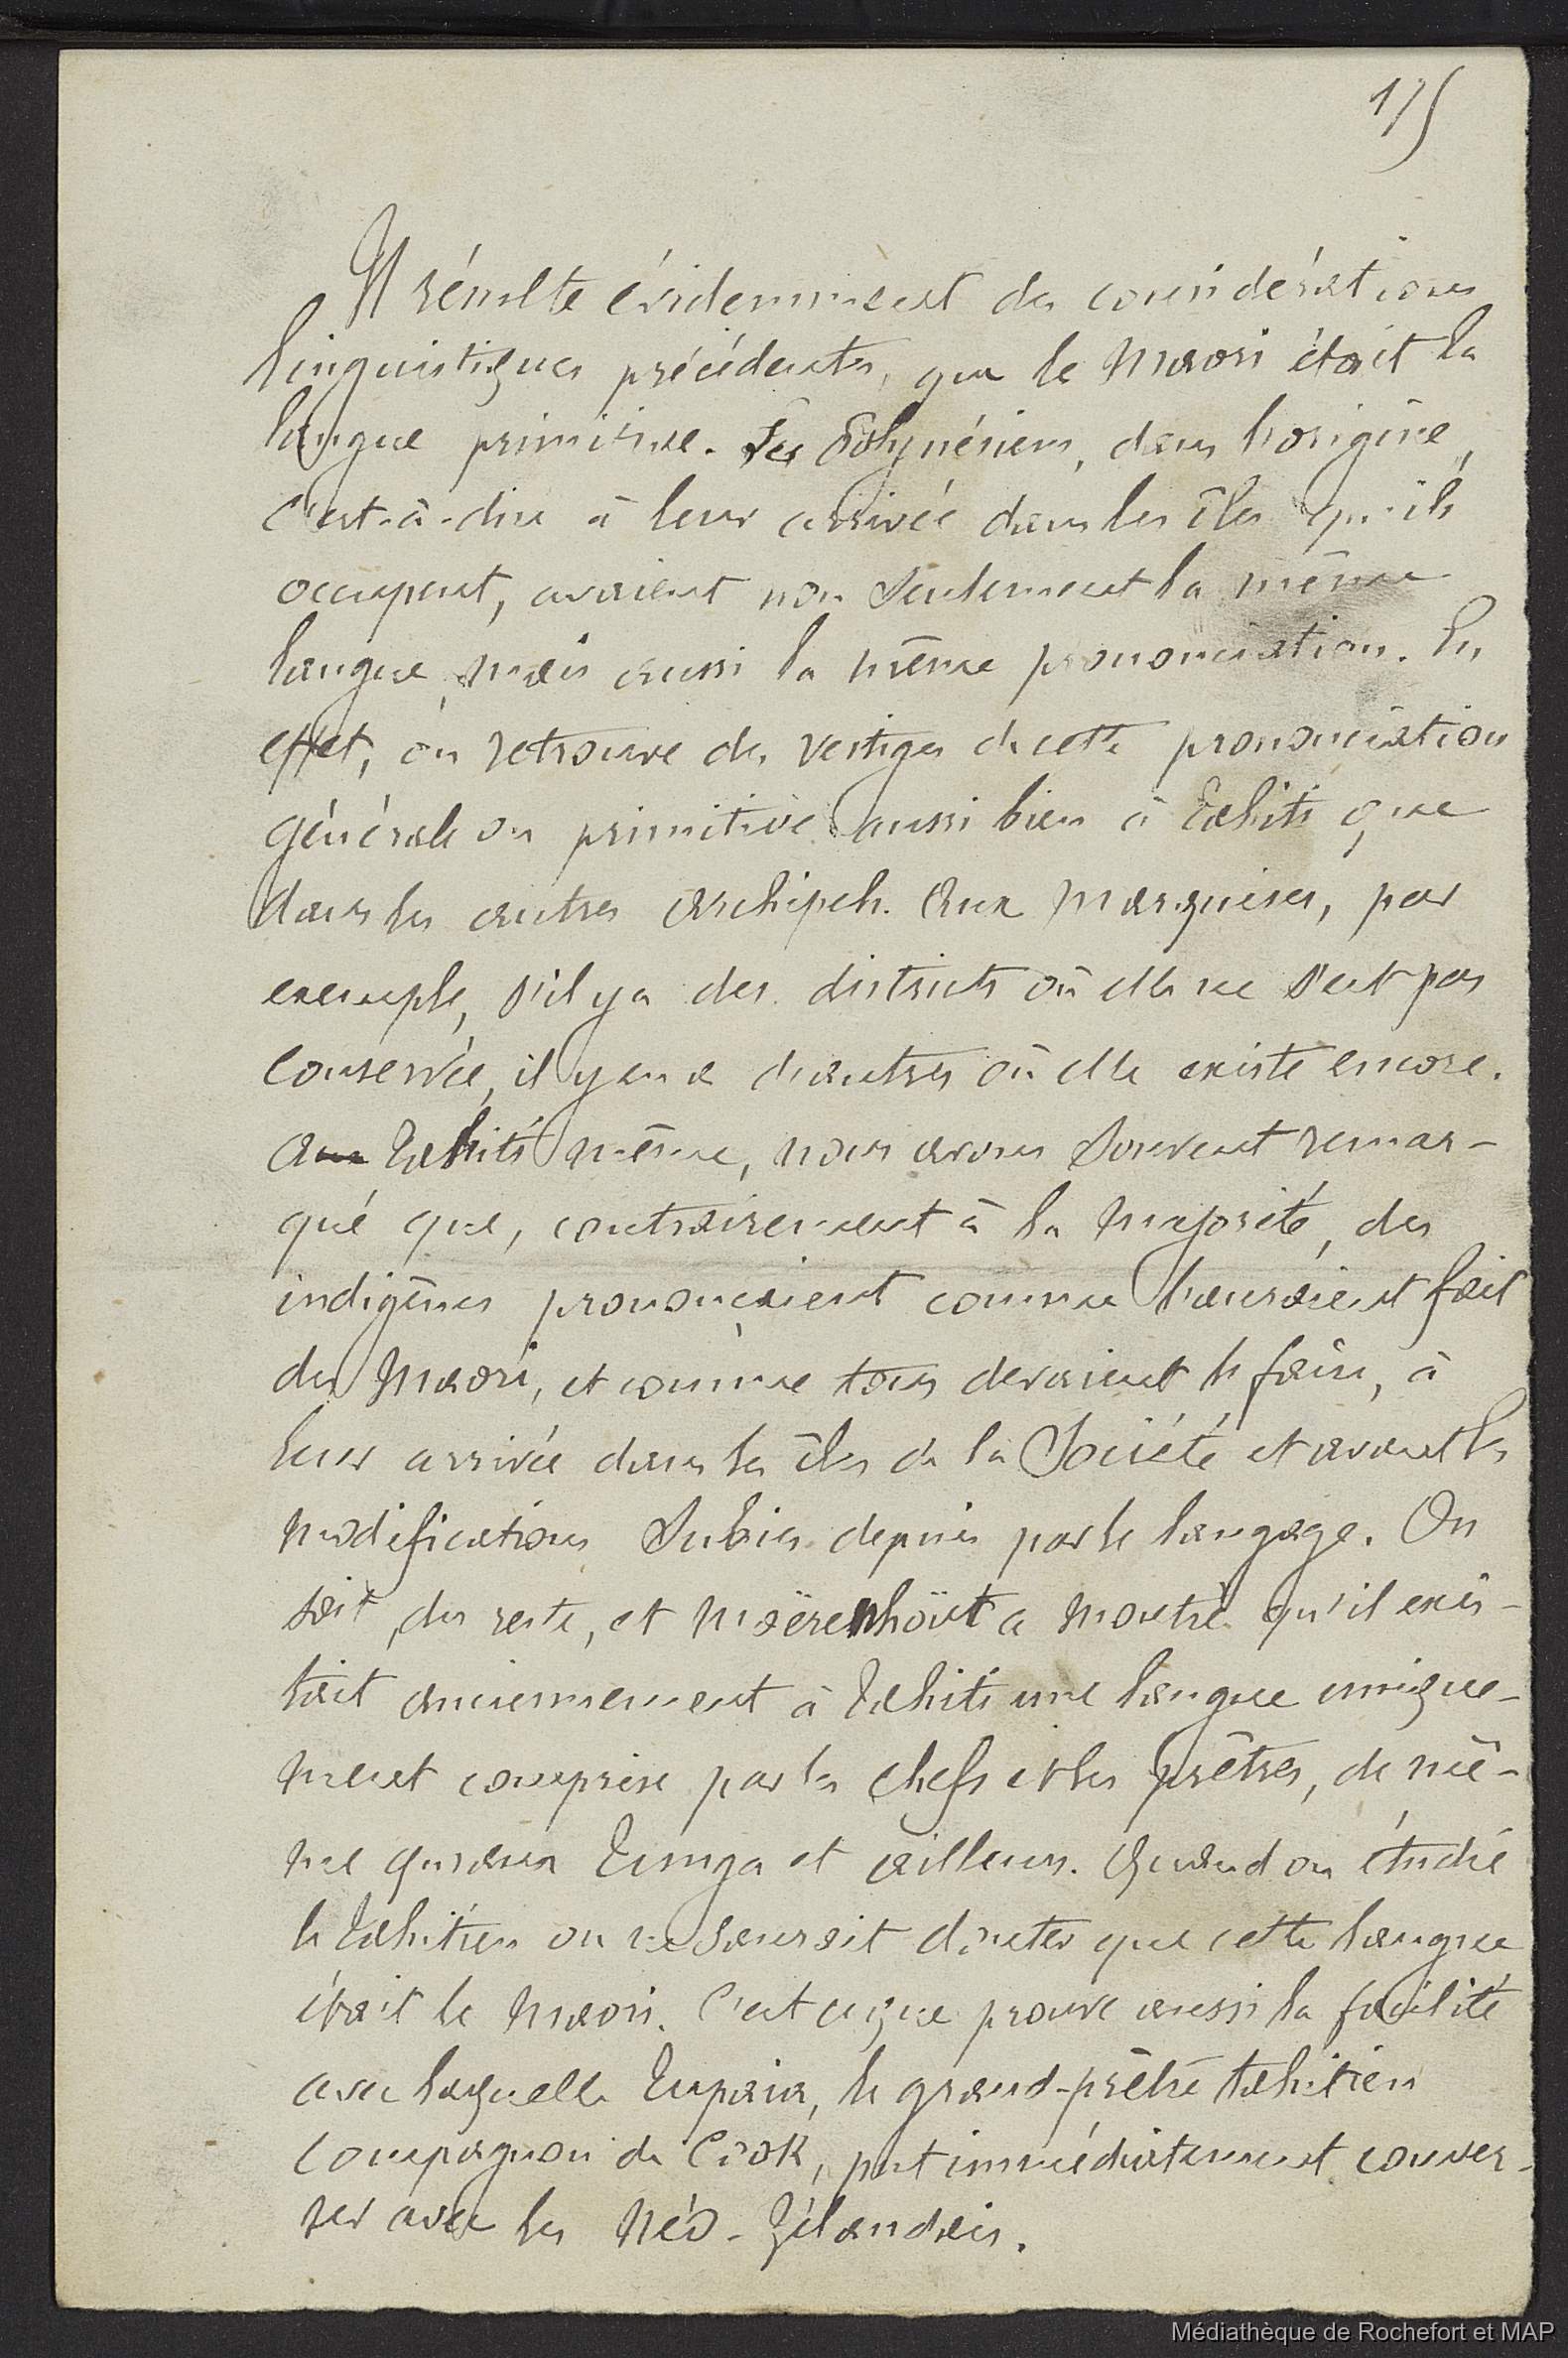 175
Il résulte évidemment des considérations
linguistiques précédentes, que le Maori était la
langue primitive. Les Polynésiens, dans l'origine,
c'est-à-dire à leur arrivée dans les îles qu'ils
occupent, avaient non seulement la même
langue, mais aussi la même prononciation. En
effet, on retrouve des vestiges de cette prononciation
générale ou primitive aussi bien à Tahiti que
dans les autres archipels. Aux Marquises, par
exemple, s'il y a des districts où elle ne s'est pas
conservée, il y en a d'autres où elle existe encore.
A Tahiti même, nous avons souvent remar-
qué que, contrairement à la majorité, des
indigènes prononçaient comme l'auraient fait
des Maori, et comme tous devaient le faire, à
leur arrivée dans les îles de la Société et avant les
modifications subies depuis par le langage. On
sait, du reste, et Moërenhoüt a montré qu'il exis-
tait anciennement à Tahiti une langue unique-
ment comprise par les chefs et les prêtres, de mê-
me qu'aux Tunga et ailleurs. Quand on étudie
le Tahitien on ne saurait douter que cette langue
était le Maori. C'est ce que prouve aussi la facilité
avec laquelle Tupaia, le grand-prêtre tahitien
compagnon de Cook, put immédiatement conver-
ser avec les Néo-Zélandais.
Médiathèque de Rochefort et MAP